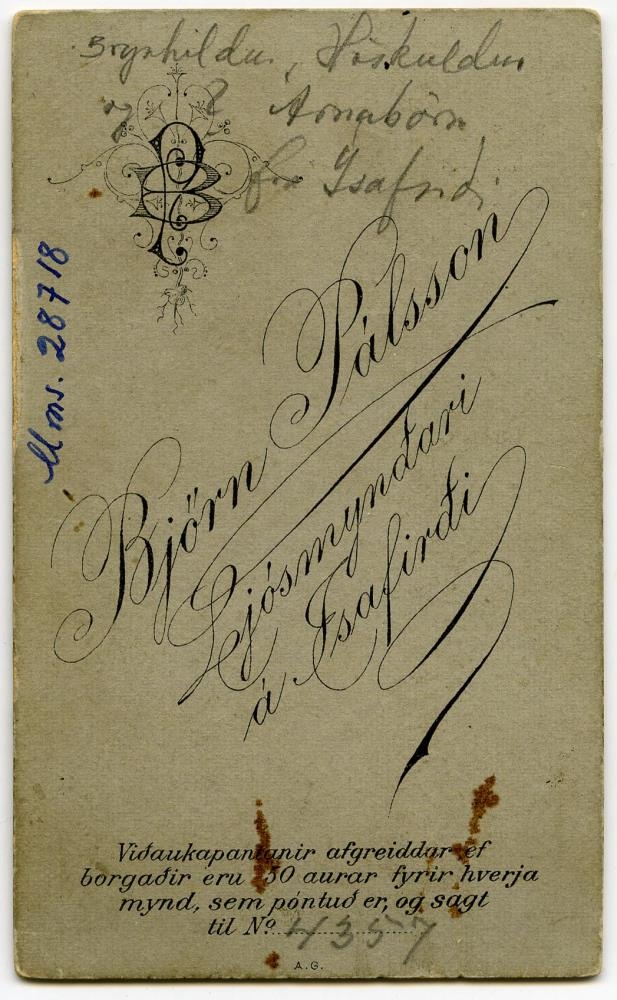 Brynhildur, Höskuldur
og ? Árnabörn
frá Ísafirði
Mms. 28718
Björn Pálsson
Ljósmyndari
á Ísafirði
Viðaukapantanir afgreiddar ef
borgaðir eru 50 aurar fyrir hverja
mynd, sem pöntuð er, og sagt
til Nº 4357
A.G.